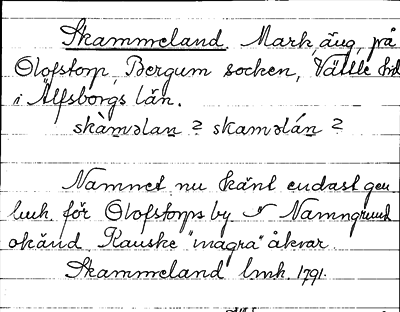 Skammeland. Mark, äng, på
Olofstorp, Bergum socken, Vättle hd
i Älfsborgs län.
skàmǝlan ? skamǝlán ?
Namnet nu känt endast gen
lmk. för Olofstorps by. Namngrund
okänd. Kanske "magra" åkrar.
Skammeland lmk. 1791.